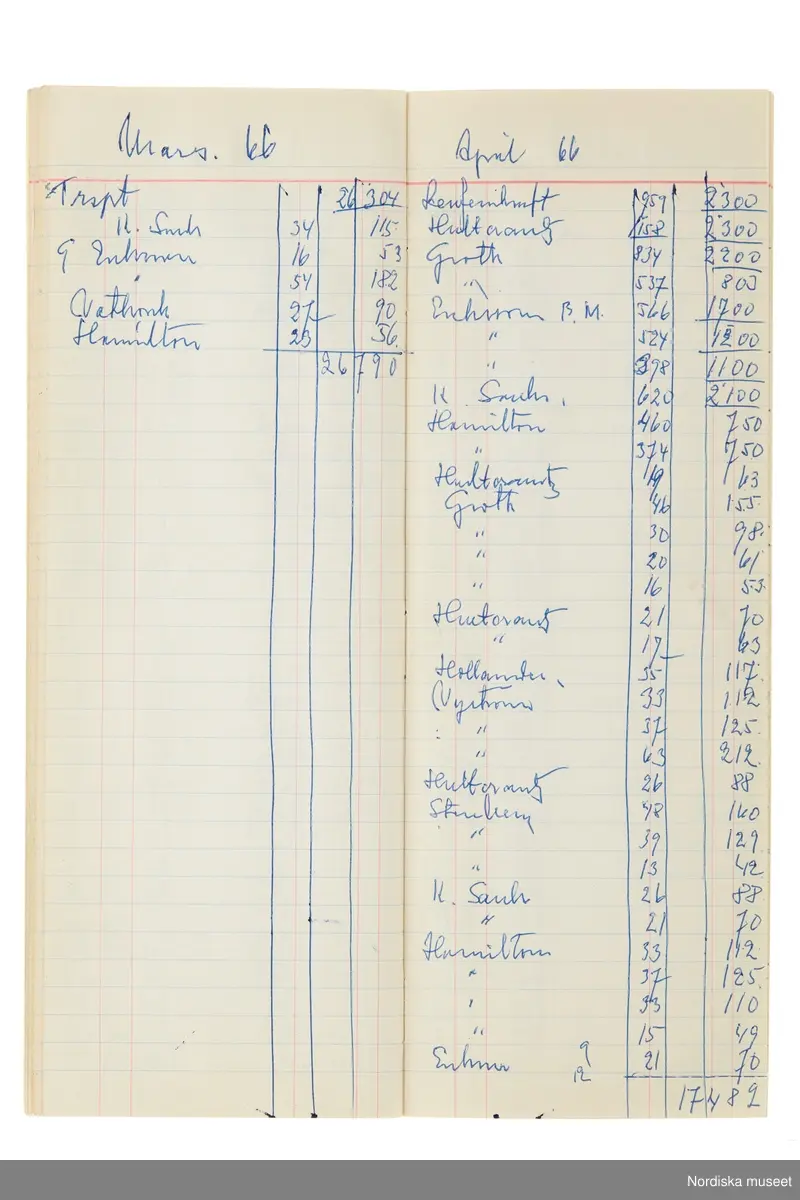 Mars. 66
Trspt 26 304
K. Sach 34 115
G Erikson 16 53
" 54 182
27 90
Hamilton 23 56.
26 790
April 66
957 2300
Hultcrantz 158 2300
Groth 834 2200
" 537 800
Eriksson B. M. 566 1700
" 524 1200
" 398 1100
K. Sachs. 620 2100
Hamilton 460 750
" 374 750
Hultcrantz 19 63
Groth 46 155
" 30 98.
" 20 61
" 16 53.
Hultcrantz 21 70
" 17 63
Hollander. 35 117.
Nyström 33 112
" 37 125.
" 63 212.
Hultcrantz 26 88
Stenberg 48 160
" 39 129
" 13 42
K. Sachs 26 88
" 21 70
Hamilton 33 112
" 37 125.
" 33 110
" 15 49
9
21 70
12
17 482
Nordiska museet